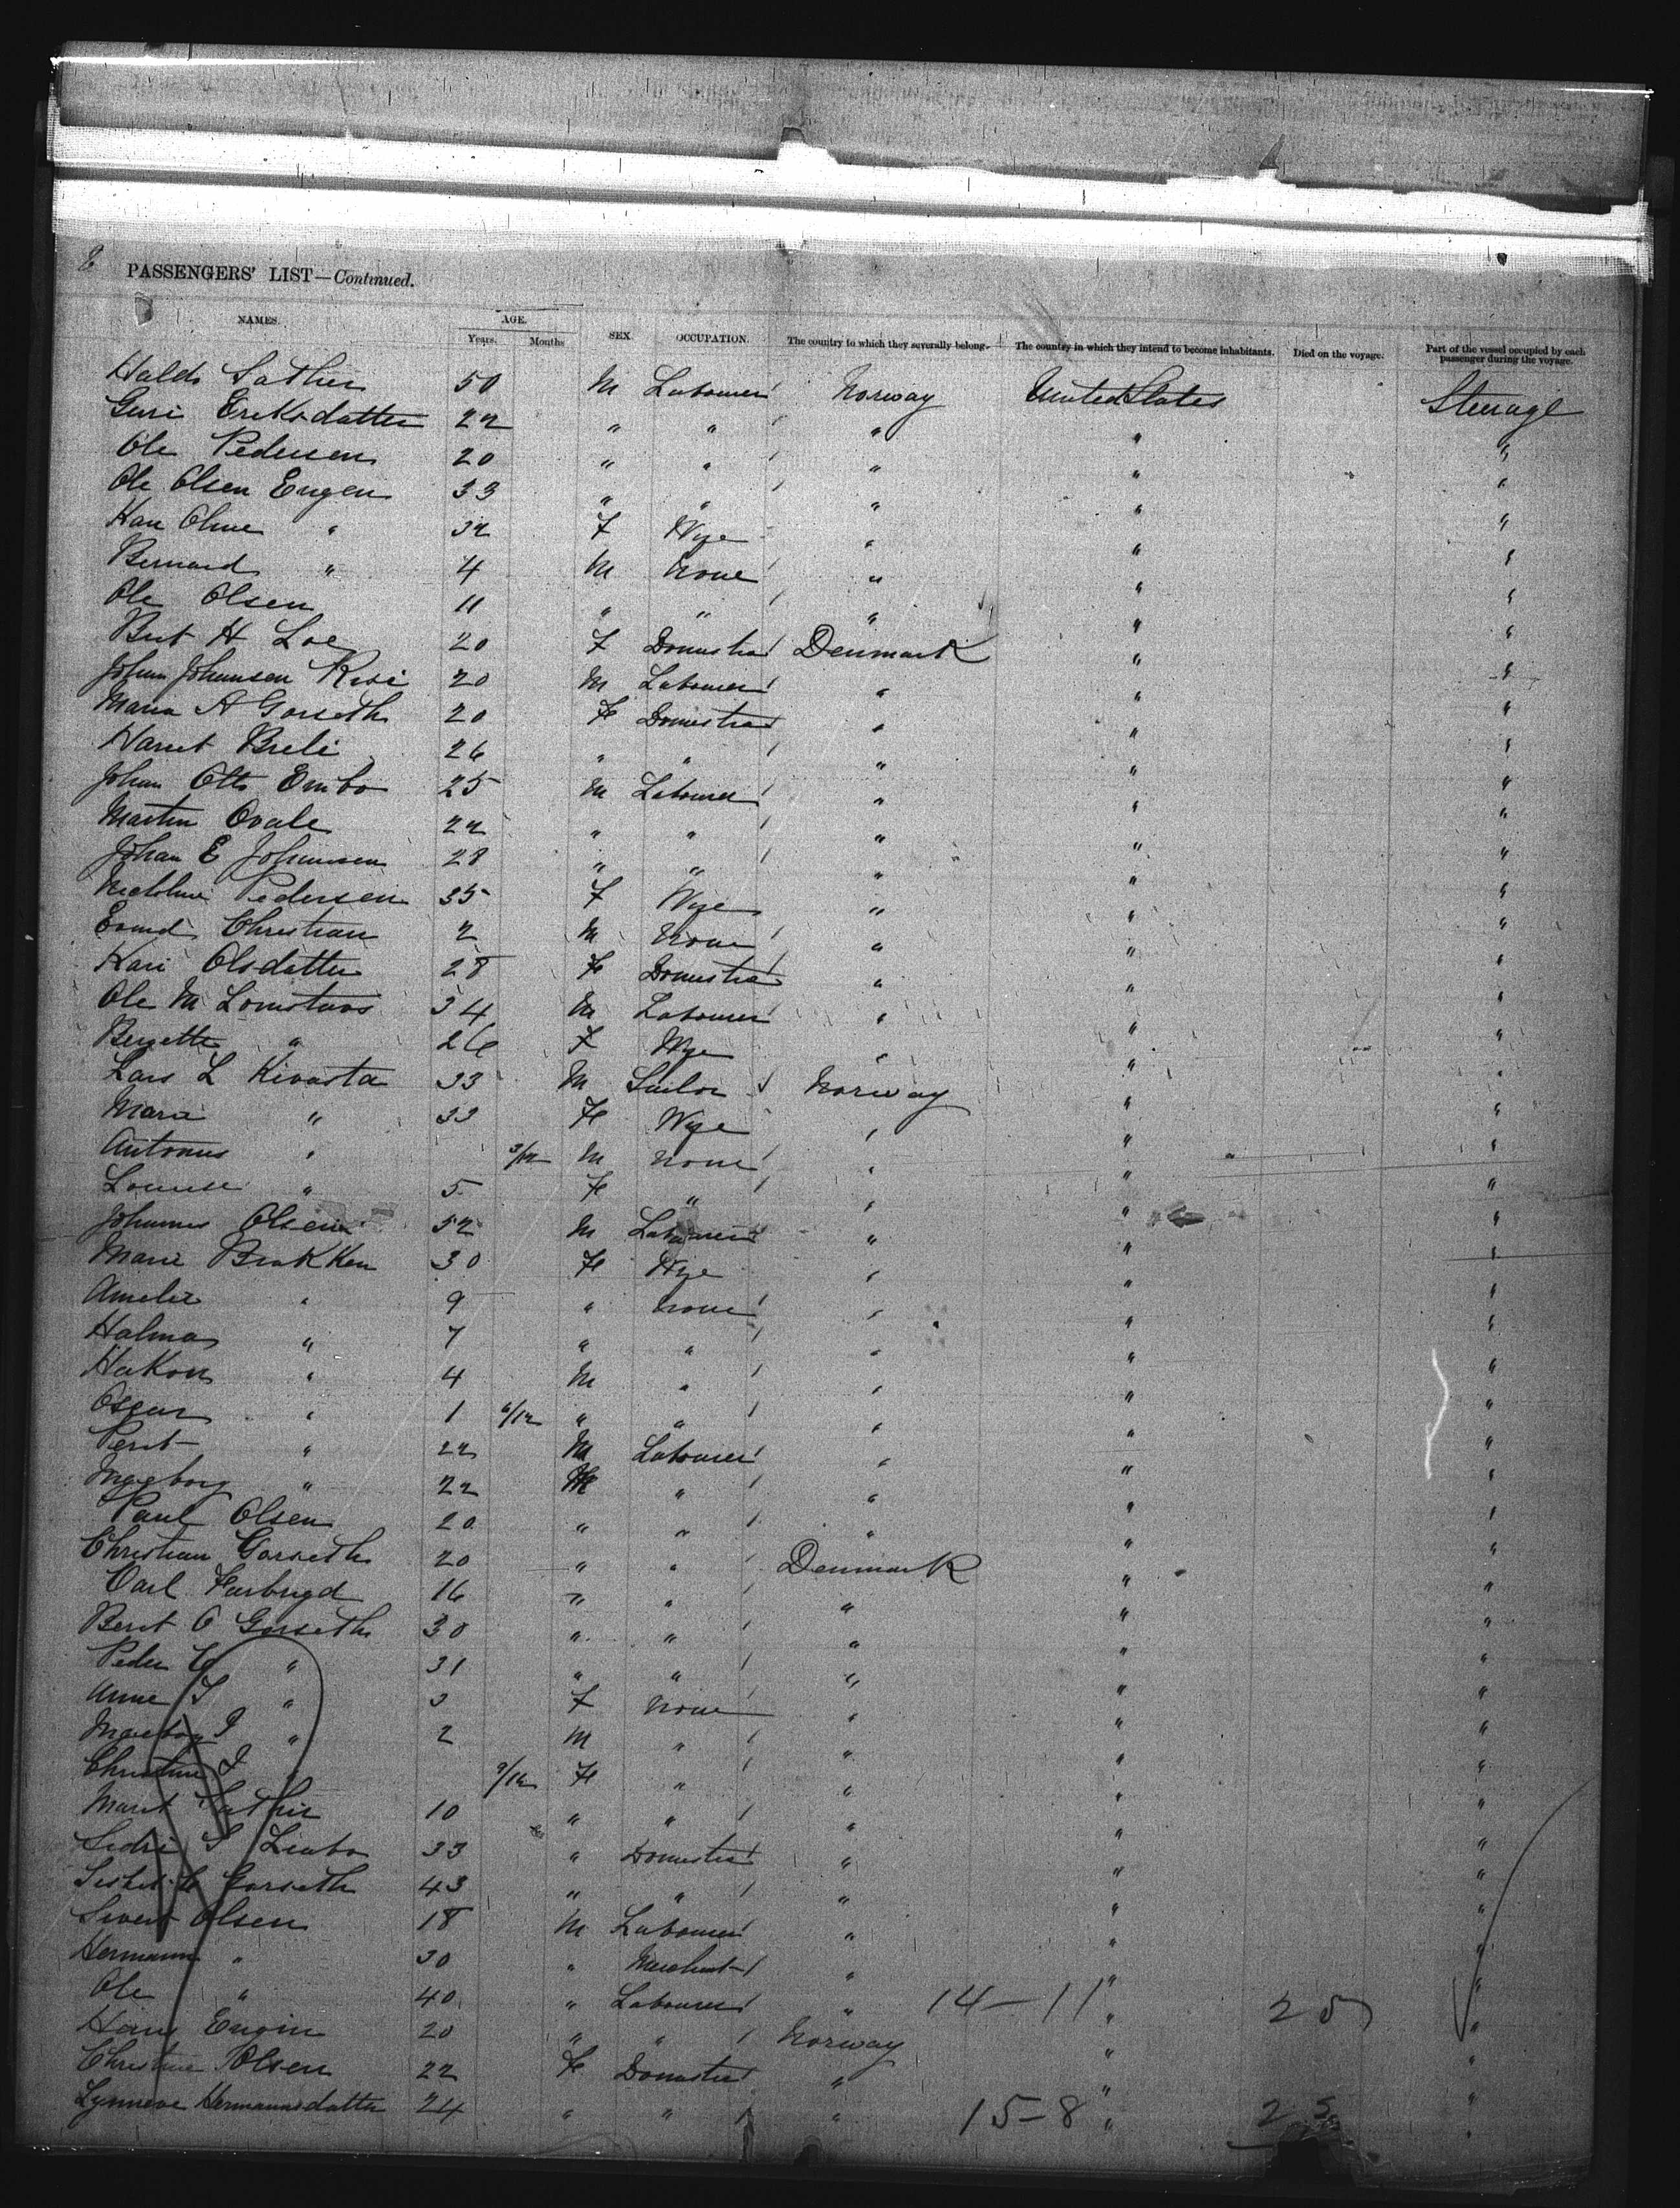 8 PASSENGERS' LIST—Continued.
NAMES. AGE. Years. Months SEX OCCUPATION. The country to which they severally belong. The country in which they intend to become inhabitants. Died on the voyage. Part of the vessel occupied by each passenger during the voyage.
Halds Sather 50 M Labourer Norway United States Steerage
Guri Eriksdatter 22 " " " " "
Ole Pedersen 20 " " " " "
Ole Olsen Engen 33 " " " " "
Kari Oline " 32 F Wife " " "
Bernard " 4 M None " " "
Ole Olsen 11 " " " " "
Brit H Loe 20 F Domestic Denmark " "
Johan Johansen 20 M Labourer " " "
Maria A Garseth 20 F Domestic " " "
26 " " " " "
Johan Otto 25 M Labourer " " "
Martin Ovale 22 " " " " "
Johan E Johansen 28 " " " " "
Pedersen 35 F Wife " " "
Christian 2 M None " " "
Kari Olsdatter 28 F Domestic " " "
Ole M 34 M Labourer " " "
" 26 F Wife " " "
Lars L 33 M Sailor Norway " "
Maria " 33 F Wife " " "
Antonius " 3/12 M None " " "
Louise " 5 F " " " "
Johannes Olsen 52 M Labourer " " "
Marie Brakken 30 F Wife " " "
Amelia " 9 " None " " "
Halma " 7 " " " " "
Hakon " 4 M " " " "
Oscar " 1 6/12 " " " " "
Berit " 22 M Labourer " " "
Ingeborg " 22 M " " " "
Paul Olsen 20 " " " " "
Christian Garseth 20 " " Denmark " "
Carl 16 " " " " "
Berit O Garseth 30 " " " " "
Peder " 31 " " " " "
Anne " 3 F None " " "
Ingeborg P " 2 M " " " "
Christine P " 9/12 F " " " "
Marit Sather 10 " " " " "
33 " Domestic " " "
Garseth 43 " " " " "
Sivert Olsen 18 M Labourer " " "
Hermann " 30 " Merchant " " "
Ole " 40 " Labourer " 14—11 " 25 "
Hans Engin 20 " " Norway " "
Christine Olsen 22 F Domestic " " "
Hermannsdatter 24 " " " 15—8 " 25 "